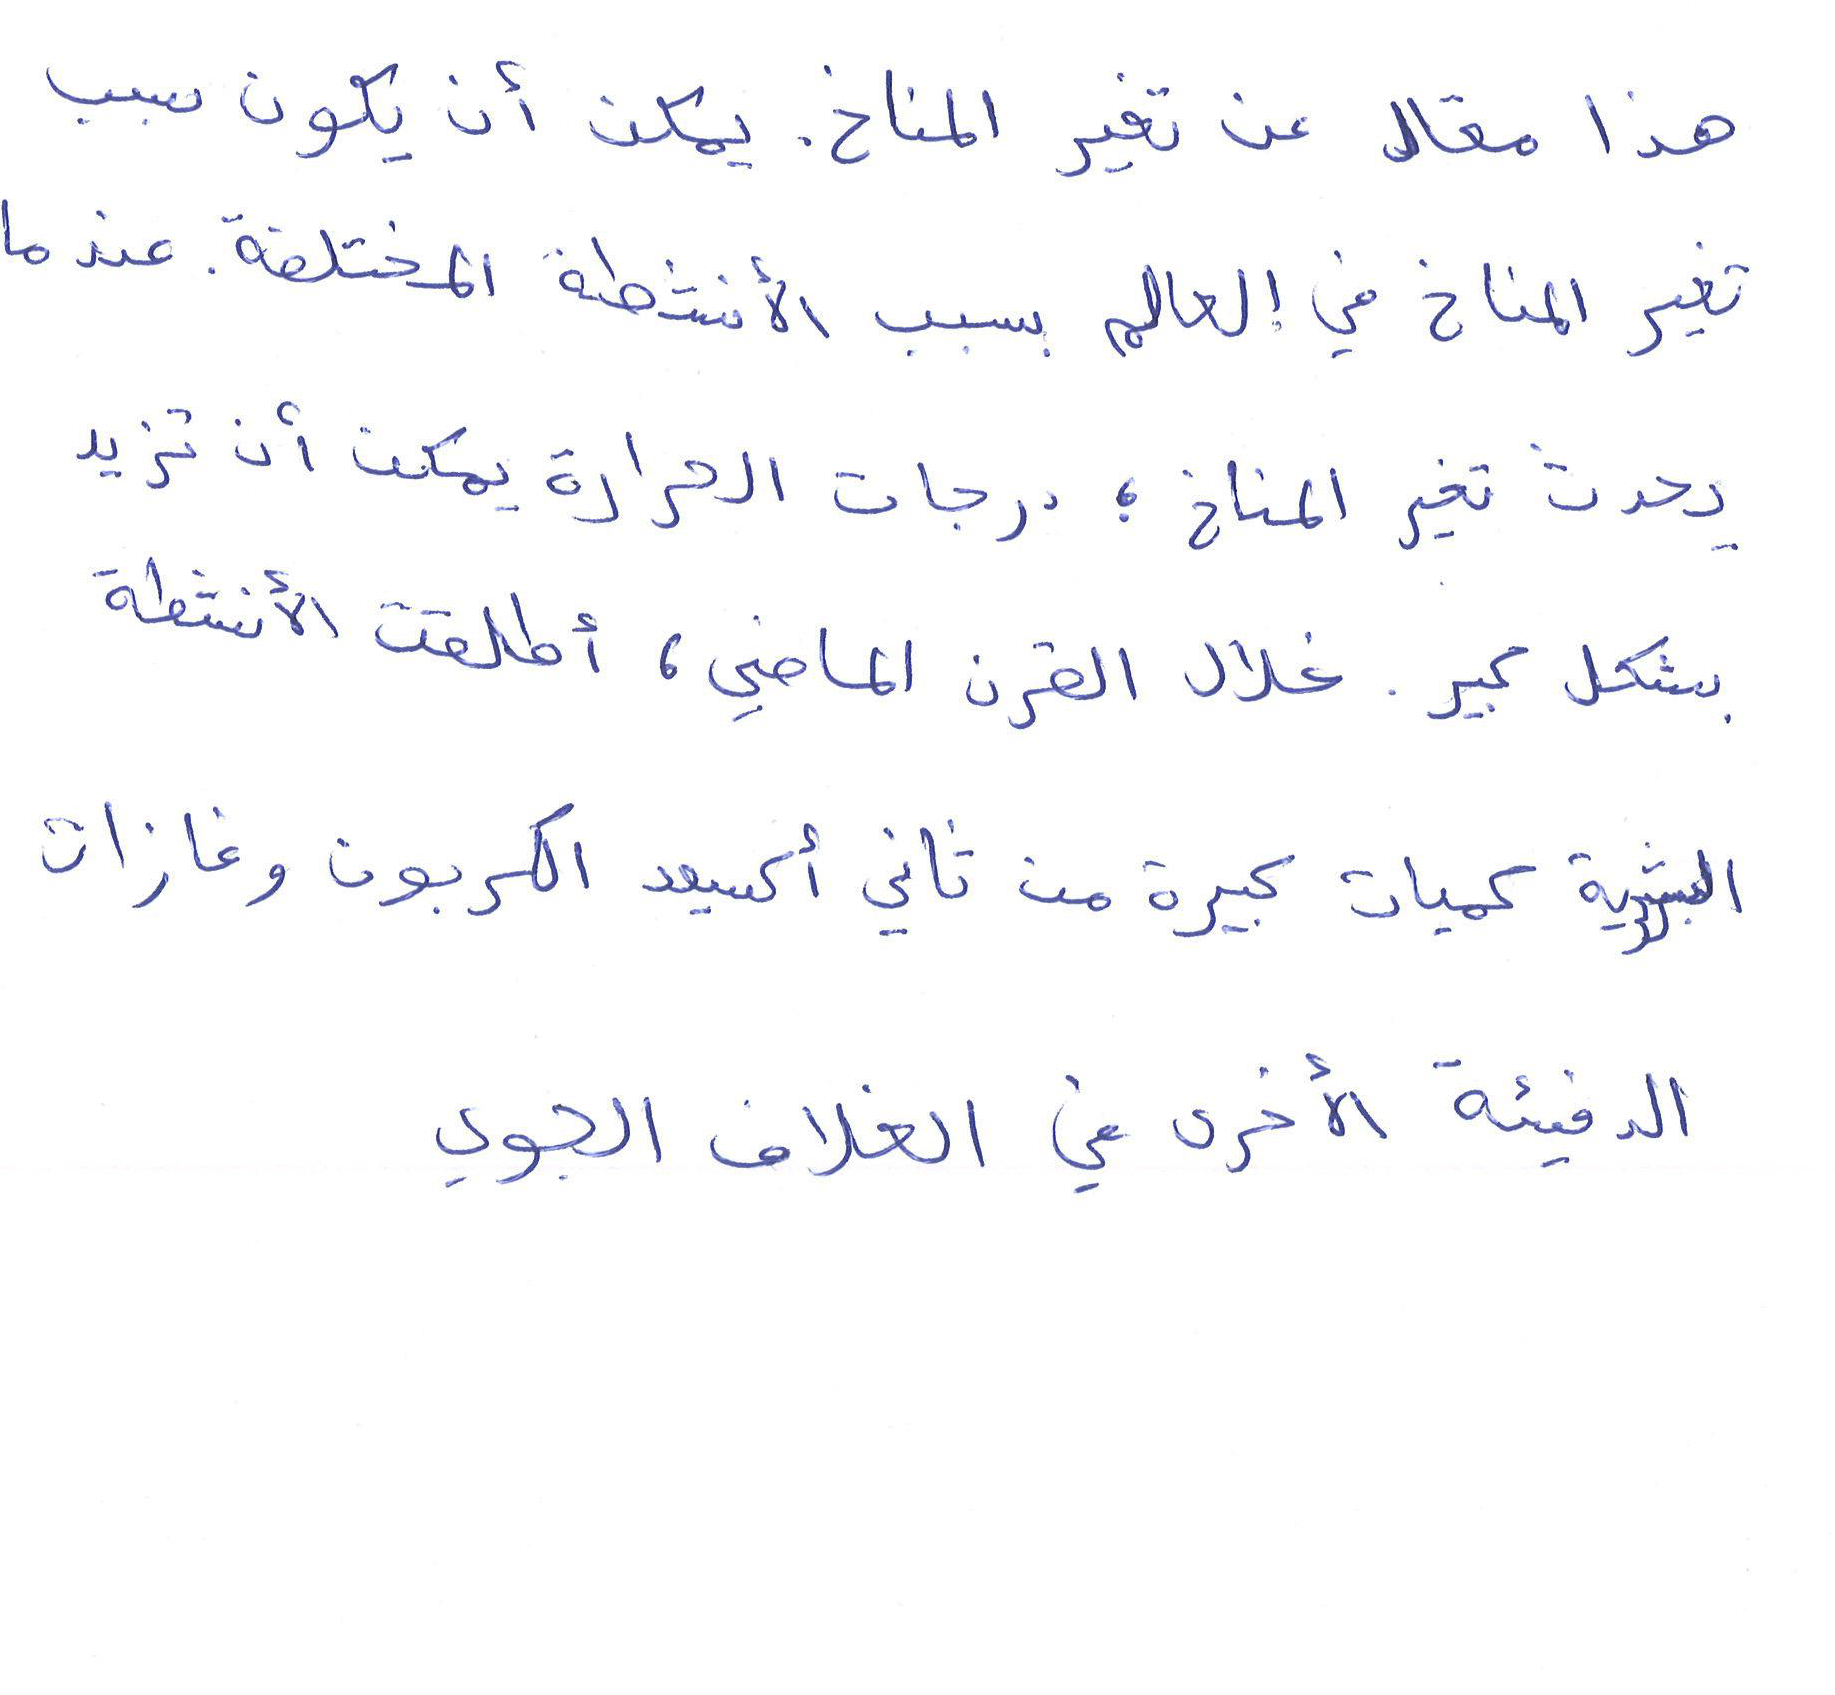 هذا مقال عن تغير المناخ. يمكن أن يكون سبب
تغير المناخ في العالم بسبب الأنشطة المختلفة. عندما
يحدث تغير المناخ ؛ درجات الحرارة يمكن أن تزيد
بشكل كبير. خلال القرن الماضي، أطلقت الأنشطة
البشرية كميات كبيرة من ثاني أكسيد الكربون وغازات
الدفيئة الأخرى في الغلاف الجوي